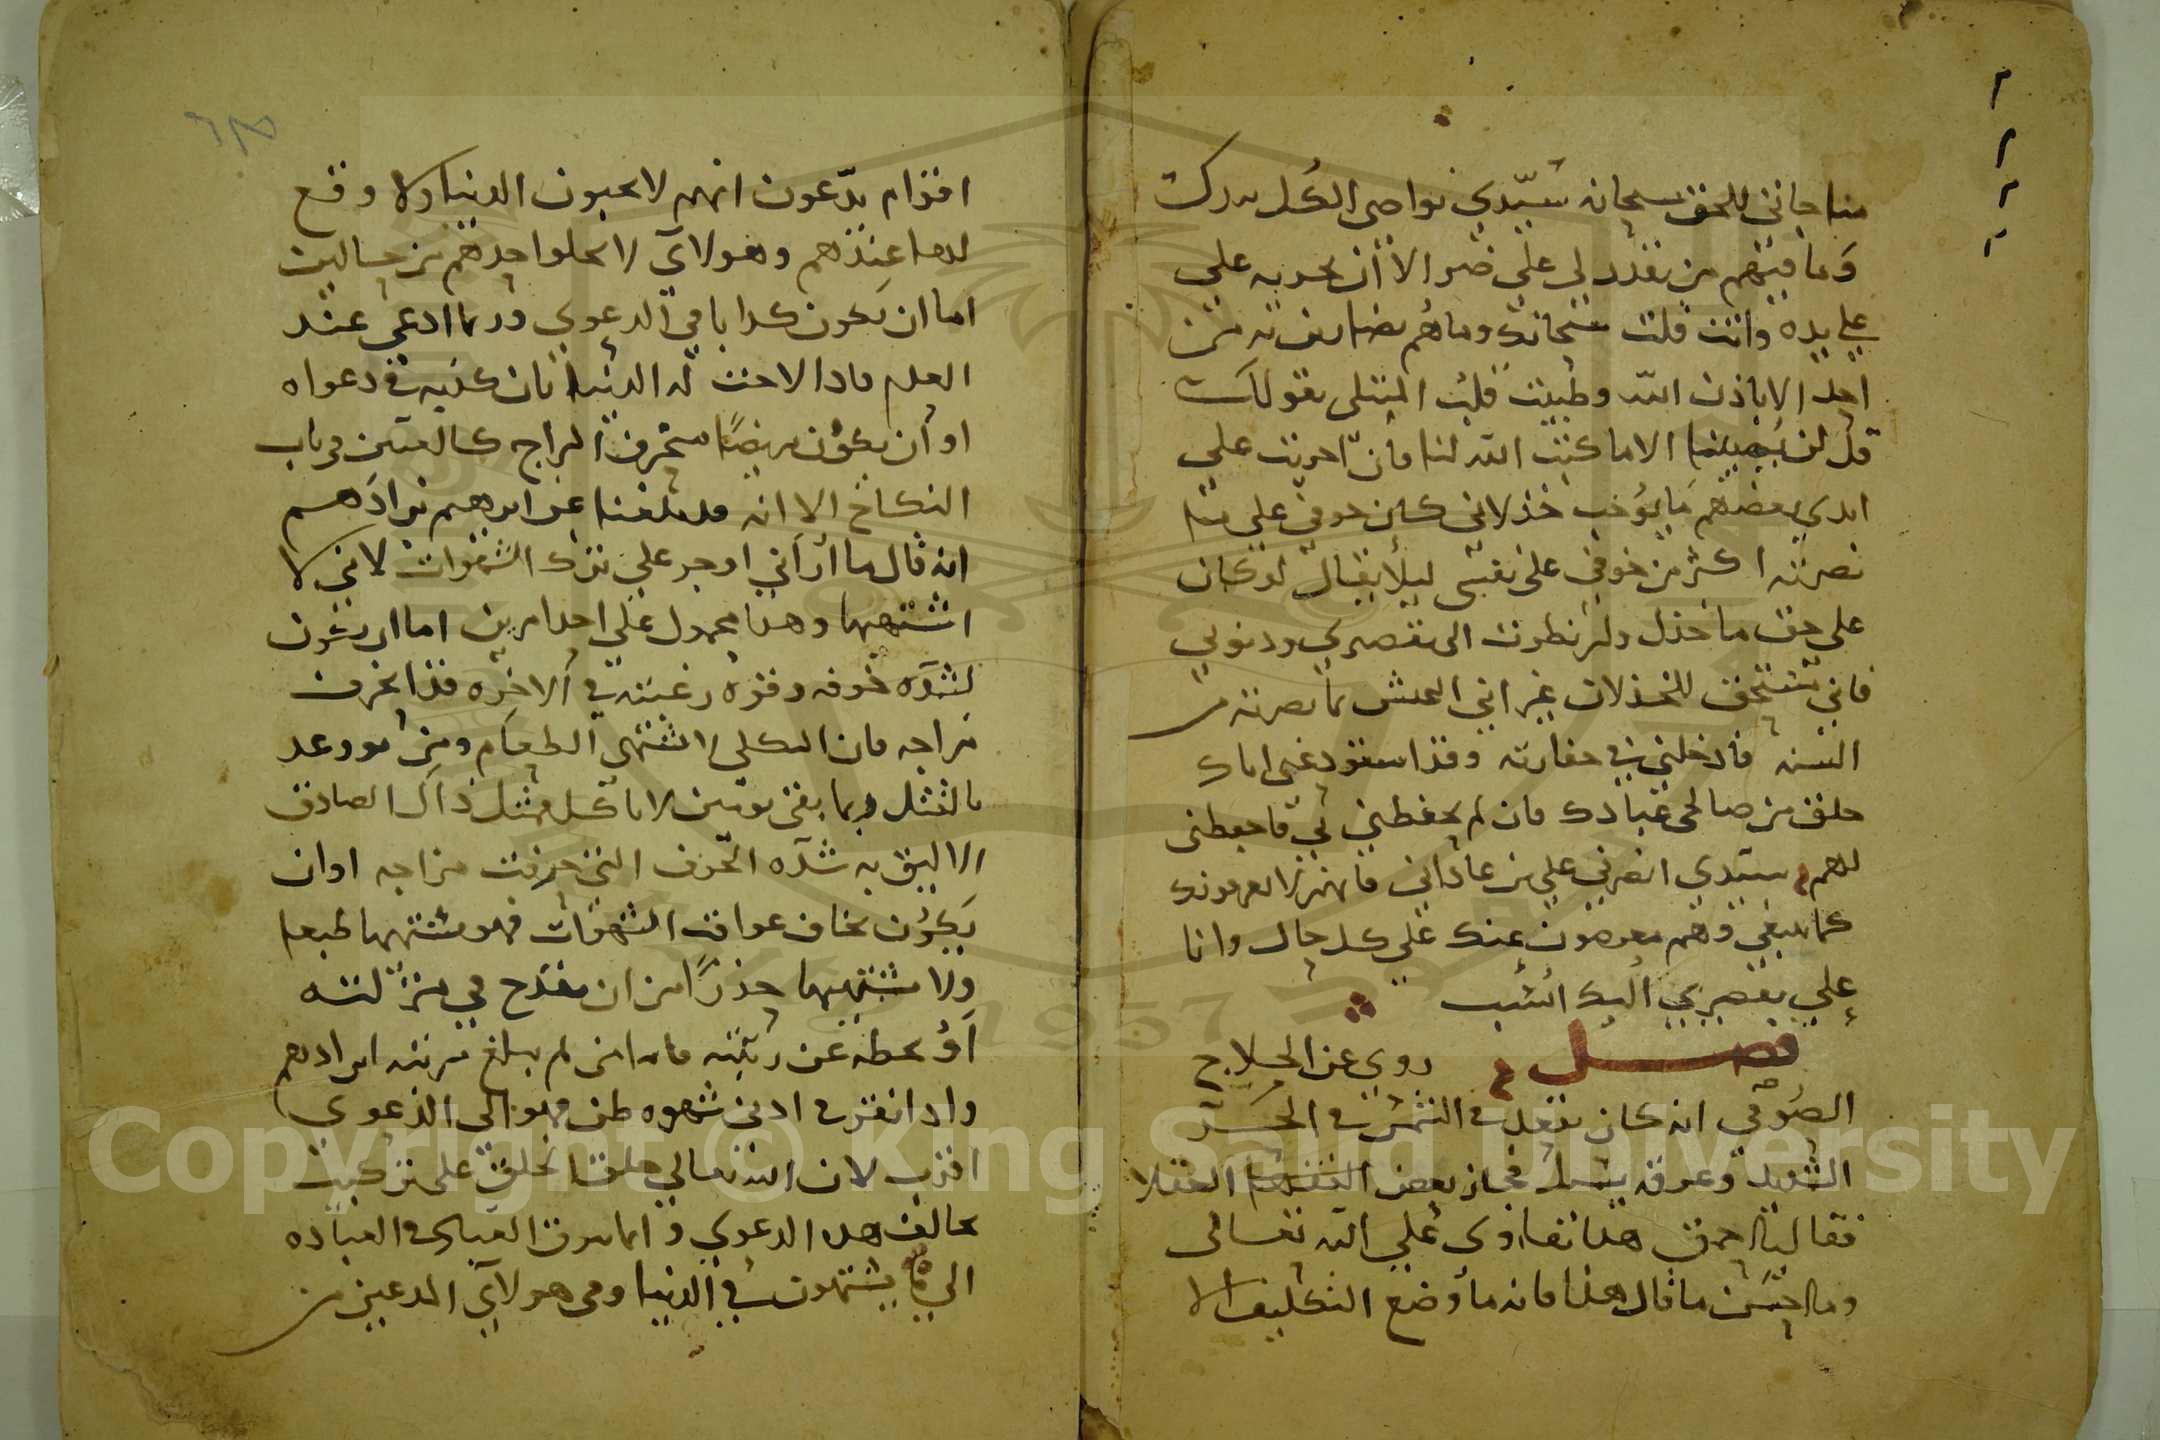 مناجاتي للحق سبحانه سيدي نواصي الكل بيدك
وما فيهم من يقدر لي على ضر الا ان تجريه على
على يده وانت قلت سبحانك وما هم بضارين به من
احد الا باذن الله وطيبت قلب المبتلى بقولك
قل لن يصيبنا الا ما كتب الله لنا فان اجريت على
ايدي بعضهم ما يوجب خذلاني كان خوفي على ما
نصرته اكثر من خوفي على نفسي ليلا يقال لو كان
على حق ما خذل ولو نظرت الى تقصيري وذنوبي
فاني مستحق للخذلان غير اني اعيش بما نصرته من
السنه فادخلني في خفارته وقد استودعني اياك
خلق من صالحي عبادك فان لم تحفظني بي فاحفظني
لهم سيدي انصرني على من عاداني فانهم لا يعرفونك
كما ينبغي وهم معرضون عنك على كل حال وانا
على تقصيري اليك انسب
فصل روي عن الحلاج
الصوفي انه كان يقعد في الشمس في الحر
الشديد وعرقه يسيل فجاز بعض العقلا
فقال يا احمق هذا تقاوي على الله تعالى
وما احسن ما قال هذا فانه ما وضع التكليف الا
اقوام يدعون انهم لا يحبون الدنيا ولا وقع
لها عندهم وهولاي لا يخلوا احدهم من حالين
اما ان يكون كذابا في الدعوي وربما ادعى عند
العلم فاذا لاحت له الدنيا بان كذبه في دعواه
او ان يكون مريضا منحرف المزاج كالعنين في باب
النكاح الا انه قد بلغنا عن ابرهيم بن ادهم
انه قال ما اراني اوجر على ترك الشهوات لاني لا
اشتهيها وهذا محمول على احد امرين اما ان يكون
لشدة خوفه وقوه رغبته في الاخره قد انحرف
مزاجه فان الثكلى لا تشتهي الطعام ومن توعد
بالقتل ربما بقي يومين لا ياكل فمثل ذاك الصادق
الاليق به شدة الخوف التي حرفت مزاجه او ان
يكون يخاف عواقب الشهوات فهو يشتهيها طبعا
ولا يشتهيها حذرا من ان تقدح في منزلته
او تحطه عن رتبته فاما من لم يبلغ مرتبه ابن ادهم
واذا تفرس ادنى شهوه طن فهو الى الدعوي
اقرب لان الله تعالى خلق الخلق على تركيب
يخالف هذه الدعوي وانما سوق العباد في العباده
الى ما يشتهون في الدنيا ومن هولاي المدعين من